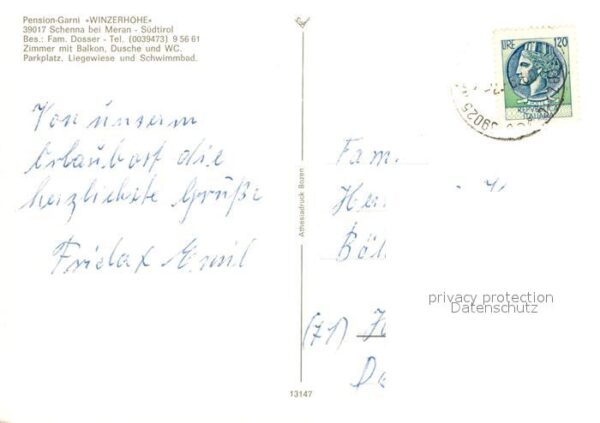 Pension-Garni «WINZERHOHE»
39017 Schenna bei Meran - Südtirol
Bes.: Fam. Dosser - Tel. (0039473) 9 56 61
Zimmer mit Balkon, Dusche und WC.
Parkplatz. Liegewiese und Schwimmbad.
LIRE 120
39025
Von unserm
Urlaubort die
herzlichste Grüße
Frieda & Emil
Athesiadruck Bozen
13147
Fam.
(71)
privacy protection
Datenschutz